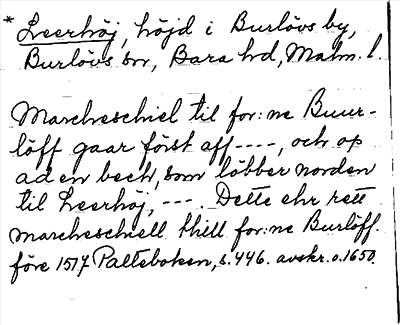 * Leerhöj, höjd i Burlövs by,
Burlövs sn, Bara hd, Malm. l.
Marcheschiel til for:ne Buur-
löff gaar först aff ----, och op
ad en beck, som löbber norden
til Leerhöj, ---. Dette ehr rett
marcheschiell thill for:ne Burlöff.
före 1517 Palteboken, s. 446. avskr. o. 1650.